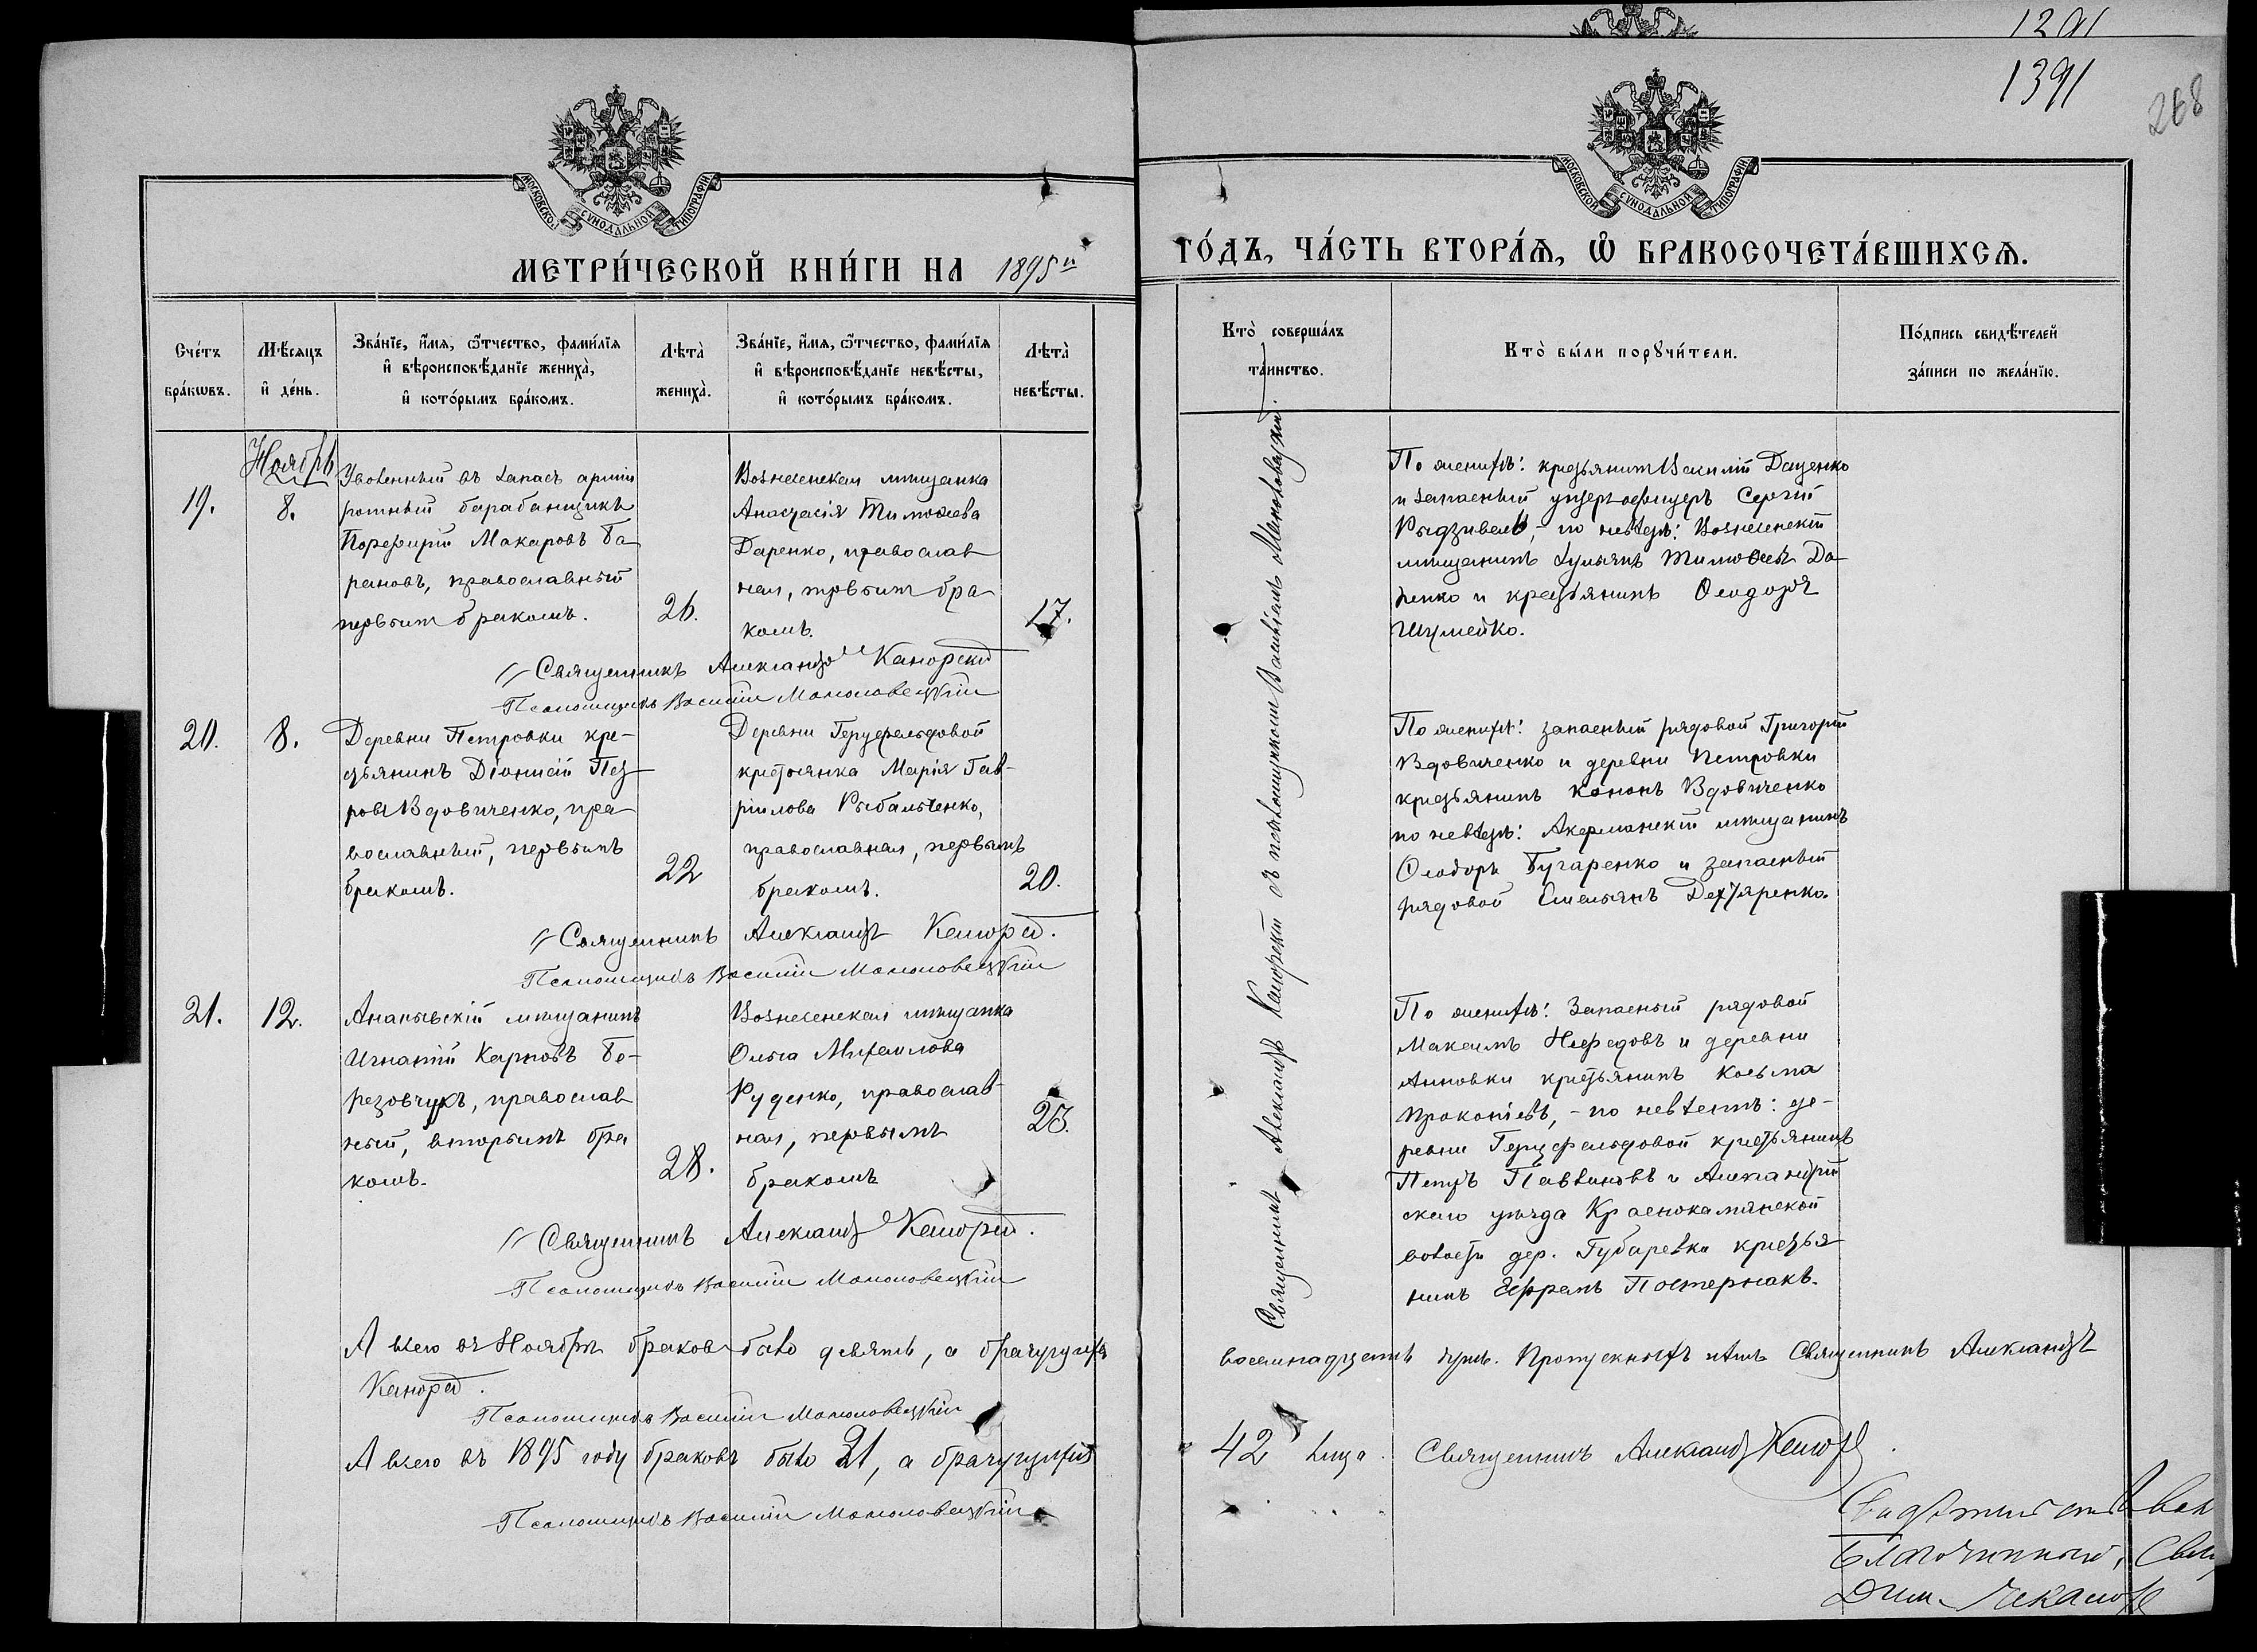 1291
1391
268
МОСКОВСКОЙ СѴНОДАЛЬНОЙ ТИПОГРАФІИ
МОСКОВСКОЙ СѴНОДАЛЬНОЙ ТИПОГРАФІИ
МЕТРИ́ЧЕСКОЙ КНИ́ГИ НА 1895й
ГО́ДЪ, ЧА́СТЬ ВТОРА́Ѧ, Ѽ БРАКОСОЧЕТА́ВШИХСѦ.
Сче́тъ бра́кѡвъ.
Мѣ́сѧцъ и҆ де́нь.
Зва́нїе, и҆́мѧ, ѻ҆́тчество, фами́лїѧ
и҆ вѣроисповѣ́данїе жениха̀,
и҆ кото́рымъ бра́комъ.
Лѣта̀ жениха̀.
Зва́нїе, и҆́мѧ, ѻ҆́тчество, фами́лїѧ
и҆ вѣроисповѣ́данїе невѣ́сты,
и҆ кото́рымъ бра́комъ.
Лѣта̀ невѣ́сты.
Кто̀ соверша́лъ та́инство.
Кто̀ бы́ли порꙋчи́тели.
По́дпись свидѣ́телей за́писи по жела́нїю.
Ноябрь
19.
8.
Уволенный въ запасъ арміи
ротный барабанщикъ
Порфирій Макаровъ Ба-
рановъ, православный
первымъ бракомъ.
26.
Вознесенская мѣщанка
Анастасія Тимофеева
Даренко, православ
ная, первымъ бра
комъ.
17.
По женихѣ: крестьянинъ Василій Даценко
и запасный унтеръ-офицеръ Сергій
по невѣстѣ: Вознесенскій
мѣщанинъ Тимофеевъ Да-
ренко и крестьянинъ Ѳеодоръ
Шумейко.
Священникъ Александръ Канорскій
Псаломщикъ Василій Маноловецкій
20.
8.
Деревни Петровки кре-
стьянинъ Діонисій Пет-
ровъ Вдовиченко, пра-
вославный, первымъ
бракомъ.
22
Деревни Герцфельдовой
крестьянка Марія Гав-
рiилова Рыбальченко,
православная, первымъ
бракомъ.
20.
По женихѣ: запасный рядовой Григорій
Вдовиченко и деревни Петровки
крестьянинъ Кононъ Вдовиченко
по невѣстѣ: Акерманскій мѣщанинъ
Ѳеодоръ Бугаренко и запасный
рядовой Емельянъ Дехтяренко.
Священникъ Александръ Канорскій.
Псаломщикъ Василій Маноловецкій
21.
12.
Ананьевскій мѣщанинъ
Игнатій Карповъ Бе-
резовчукъ, православ
ный, вторымъ бра
комъ.
28.
Вознесенская мѣщанка
Ольга Михаилова
Руденко, православ-
ная, первымъ
бракомъ
23.
По женихѣ: Запасный рядовой
Максимъ Нефедовъ и деревни
Анновки крестьянинъ Косьма
Прокопіевъ, - по невѣстѣ: де-
ревни Герцфельдовой крестьянинъ
Петръ Павлиновъ и Александрій
скаго уѣзда Краснокаменской
волости дер. Губаревки крестья
нинъ Ефремъ Постернакъ.
Священникъ Александръ Канорскій.
Псаломщикъ Василій Маноловецкій
Священникъ Александръ Канорскій съ псаломщикомъ Василіемъ Маноловецкій.
А всего въ Ноябрѣ браковъ было девять, а брачущихся
восемнадцать душъ. Пропускныхъ нѣтъ Священникъ Александръ
Канорскій.
Псаломщикъ Василій Маноловецкій
А всего въ 1895 году браковъ было 21, а брачущихся
42 лица. Священникъ Александръ Канорскій.
Псаломщикъ Василій Маноловецкій
Благочинный, Свящ
Дим.